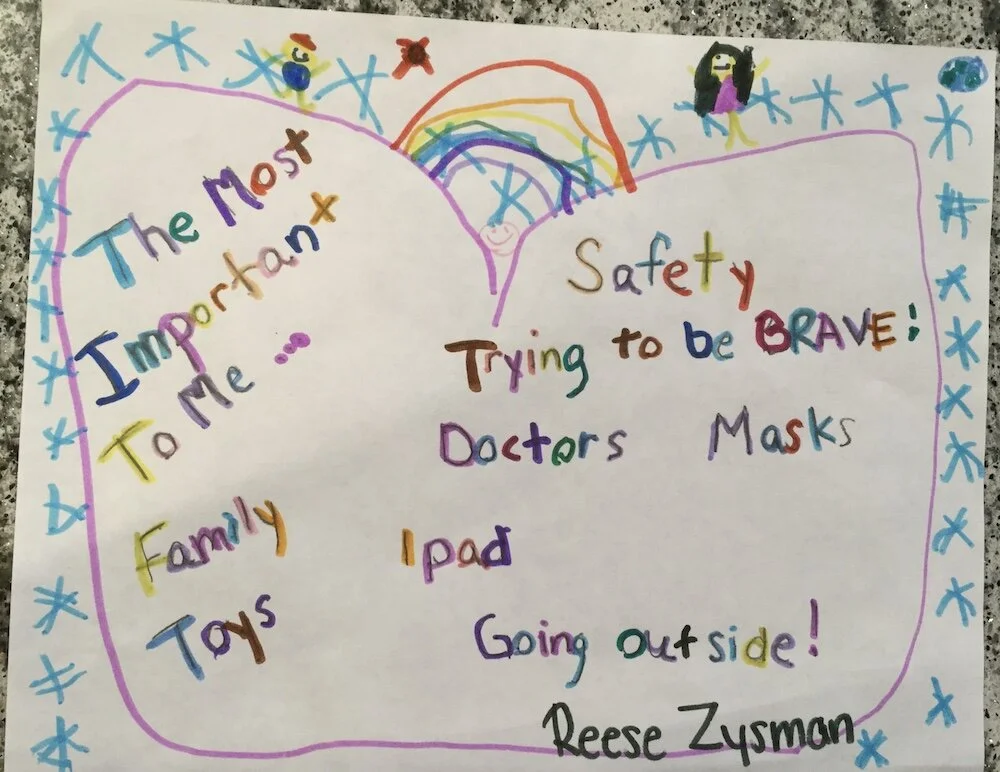 The Most
Important
To Me ...
Safety
Trying to be BRAVE!
Doctors Masks
Family Ipad
Toys
Going outside!
Reese Zysman